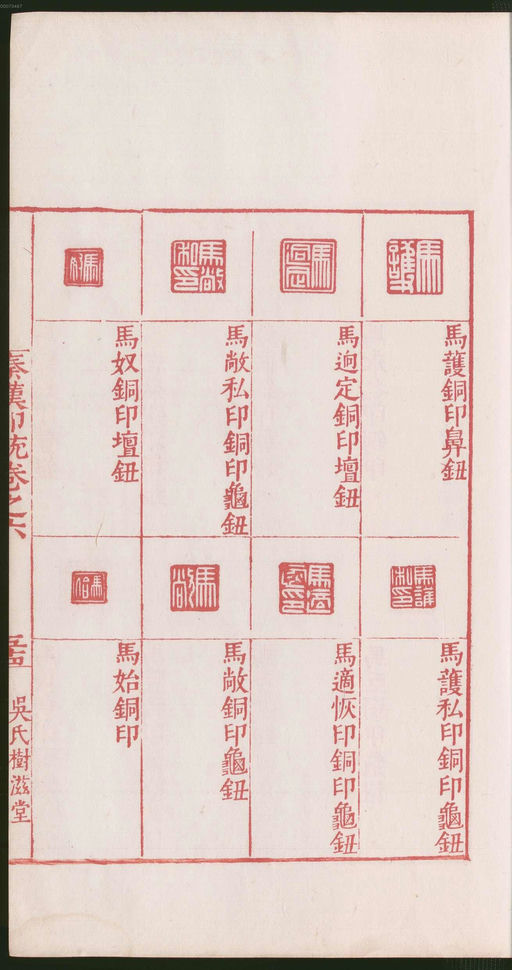 馬護銅印鼻鈕
馬逈定銅印壇鈕
馬敞私印銅印龜鈕
馬奴銅印壇鈕
馬護私印銅印龜鈕
馬適恢印銅印龜鈕
馬敞銅印龜鈕
馬始銅印
秦漢印統卷之六
吳氏樹滋堂